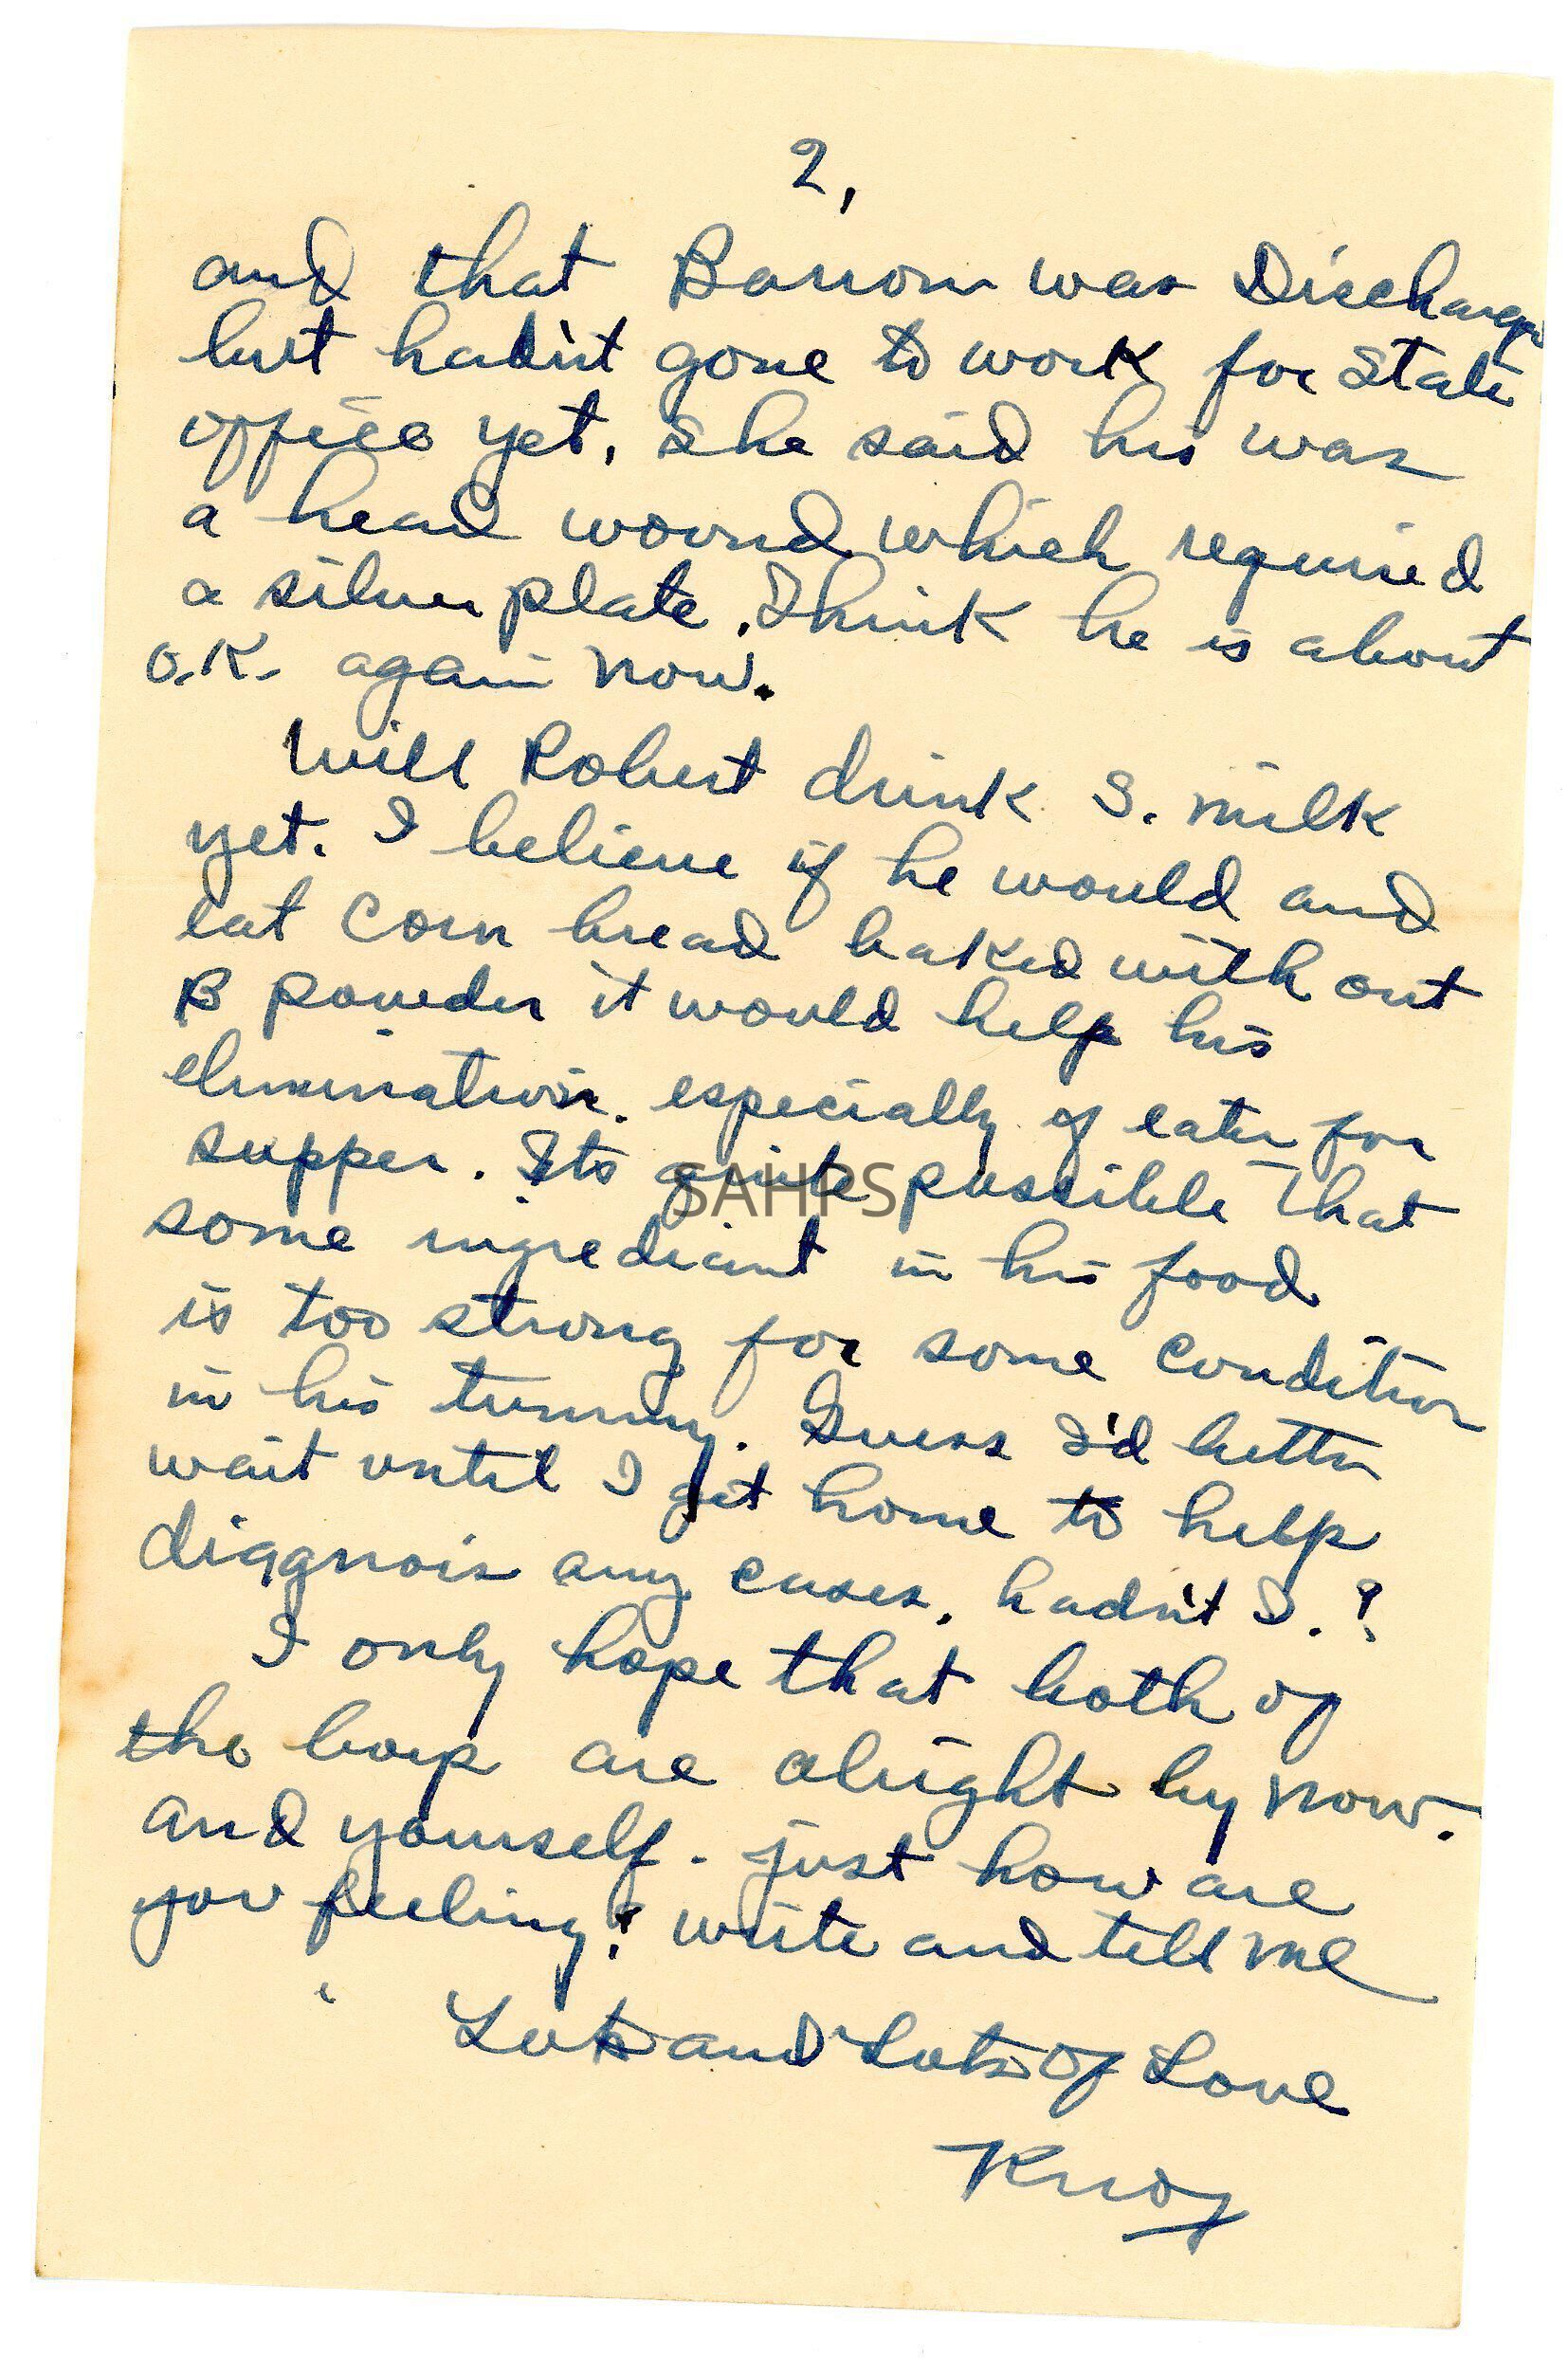 2,
and that Barrom was Discharge
but hadn't gone to work for State
office yet, she said his was
a head wound which required
a silver plate. Think he is about
O.K. again now.
Will Robert drink S. milk
yet. I believe if he would and
eat corn bread baked with out
B powder it would help his
elimination. especially if eaten for
supper. Its quite possible that
SAHPS
some ingrediant in his food
is too strong for some condition
in his tummy. Guess I'd better
wait until I get home to help
diagnois any cases, hadn't I.?
I only hope that both of
the boys are alright by now.
and yourself. just how are
you feeling? write and tell me
Lots and Lots of Love